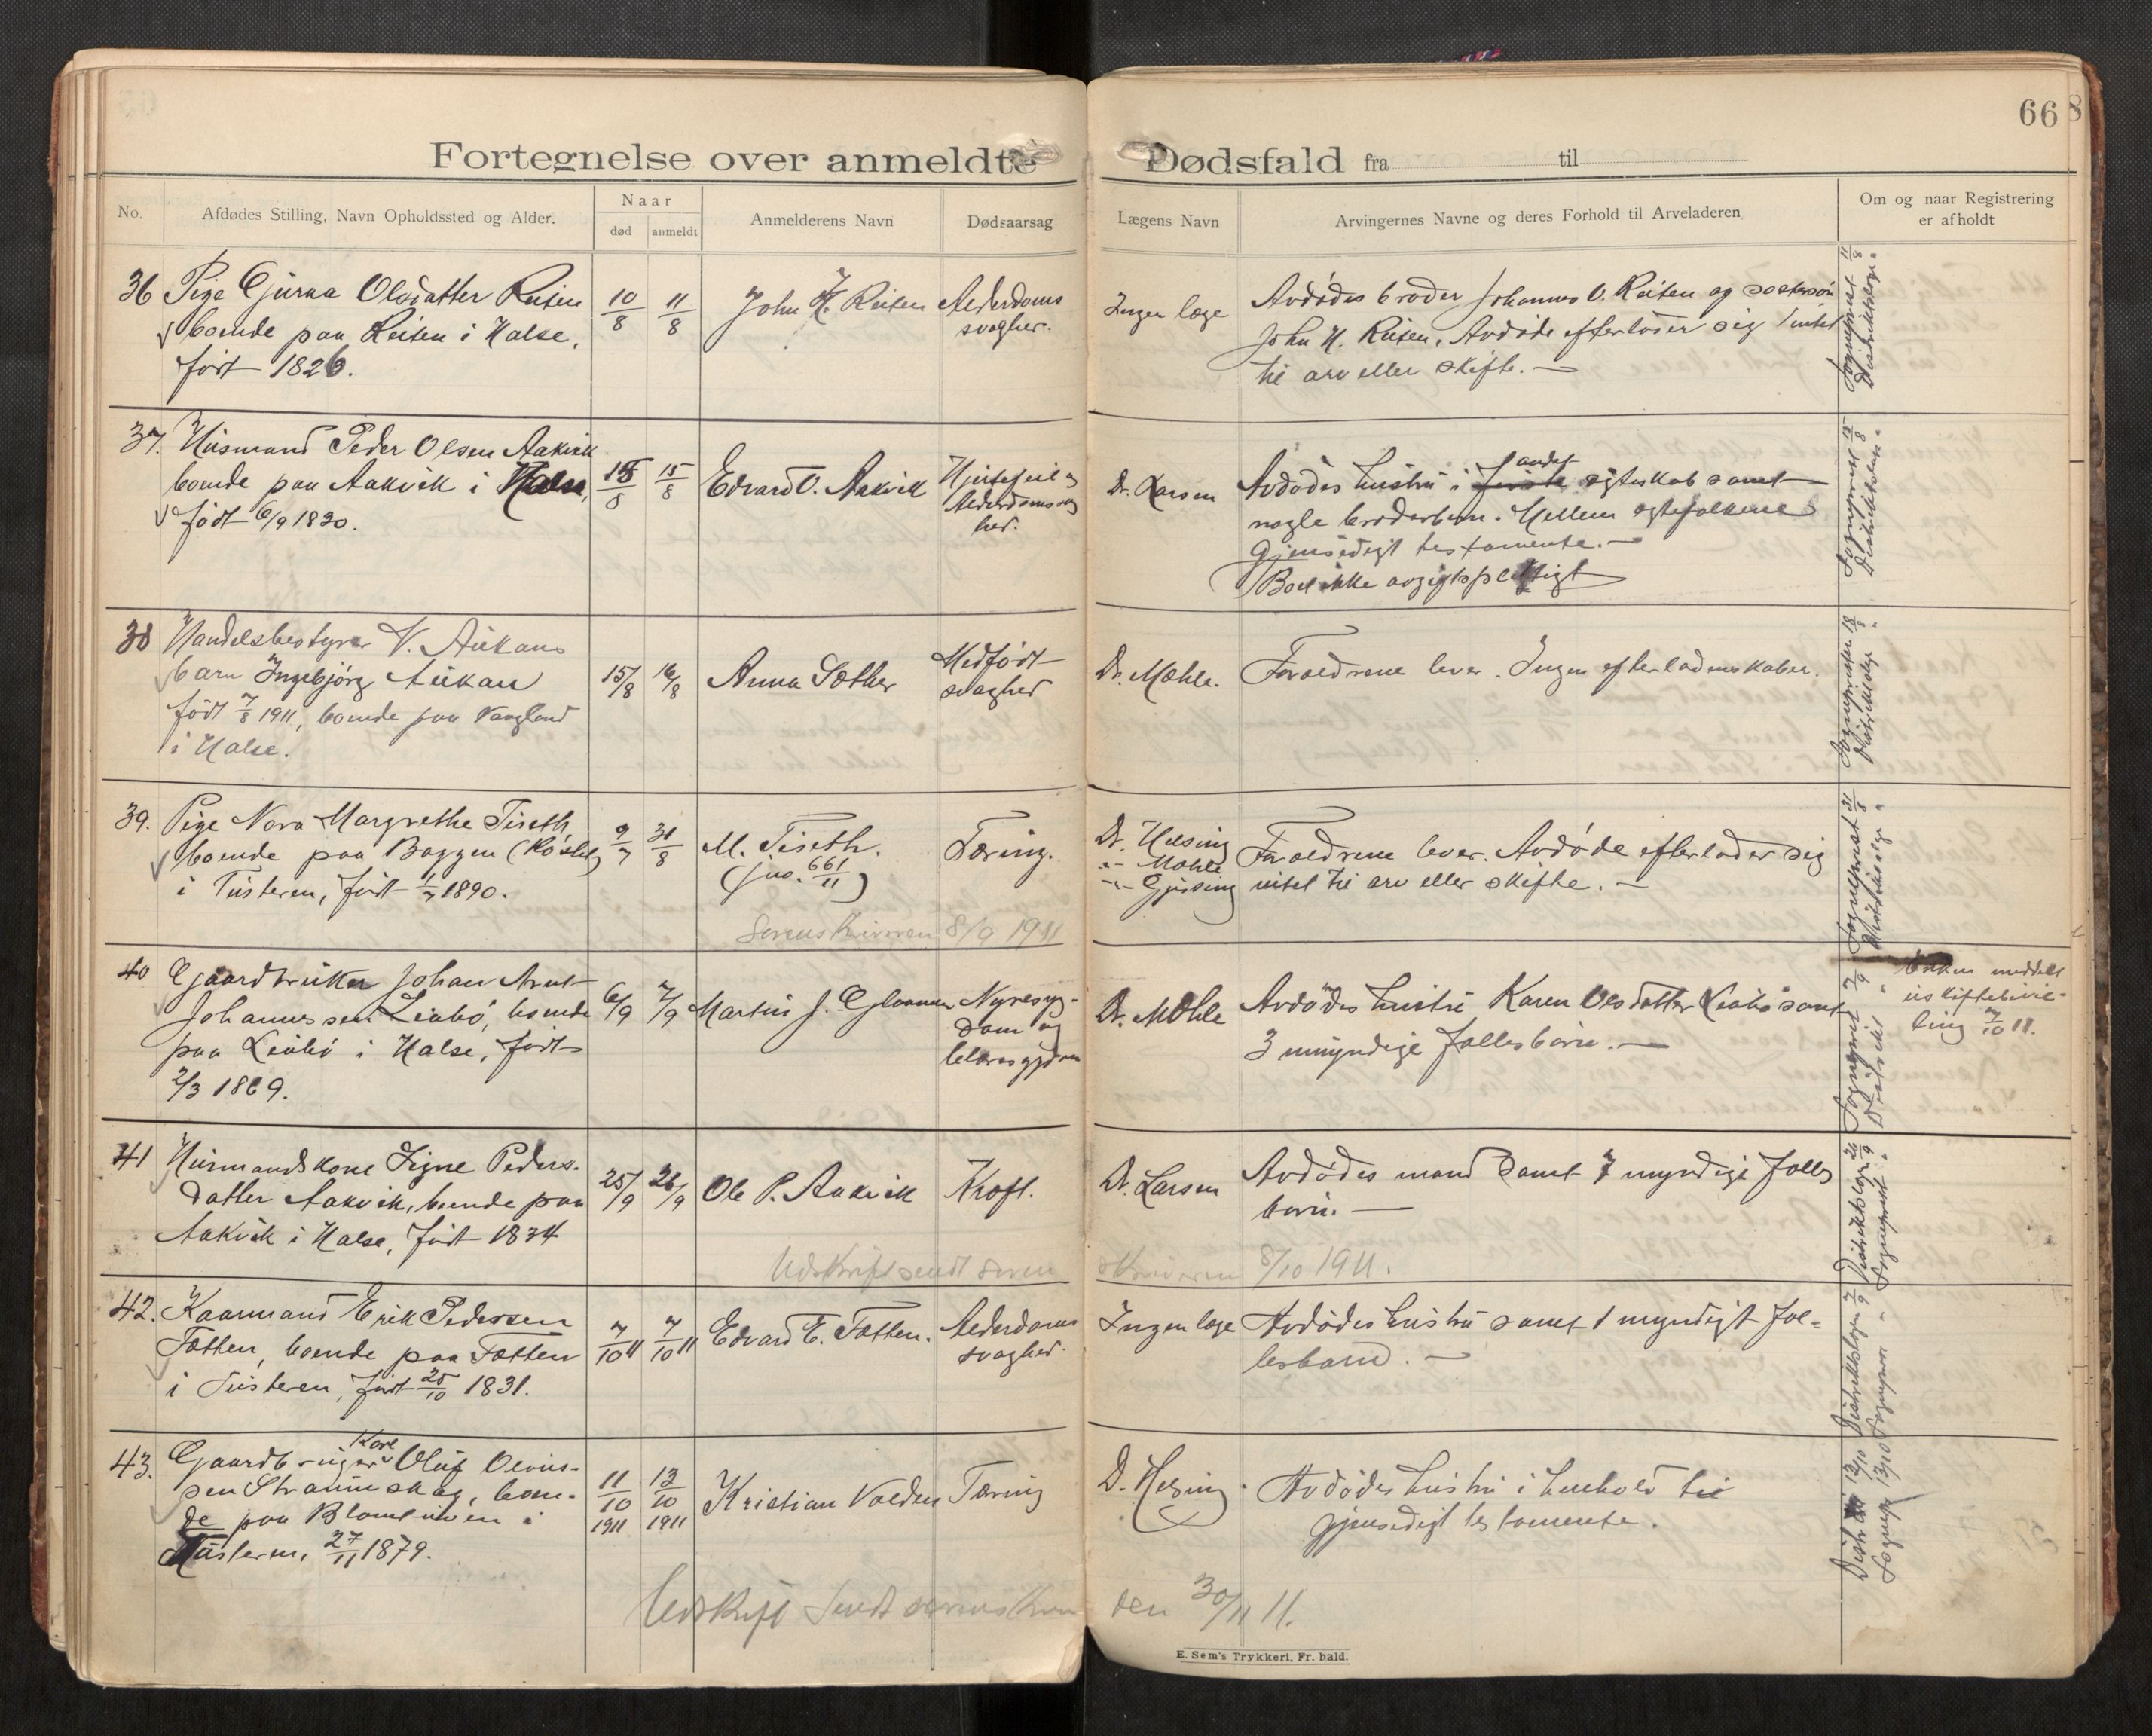 66
Fortegnelse over anmeldte Dødsfald fra til
No.
Afdødes Stilling, Navn Opholdssted og Alder.
Naar
død
anmeldt
Anmelderens Navn
Dødsaarsag
Lægens Navn
Arvingernes Navne og deres Forhold til Arveladeren
Om og naar Registrering
er afholdt
36 Pige Gjura Olsdatter Reiten
boende paa Reiten i Halse,
født 1826.
10/8
11/8
John H. Reiten
Alderdoms
svaghed.
Ingen læge
Avdødes broder Johannes O. Reiten og søstersøn
John H. Reiten. Avdøde efterlater sig intet
til arv eller skifte. —
Sogneprest 11/8
Distriktslæge "
37. Husmand Peder Olsen Aakvik
boende paa Aakvik i Halse,
født 6/9 1830.
15/8
15/8
Edvard O. Aakvik
Hjertefeil og
Alderdomssvag
hed.
Dr. Larsen
Avdødes hustru i første andet egteskab samt
nogle broderbørn. Mellem egtefolkene
gjensidigt testamente. —
Boet ikke avgiftspligtigt
Sogneprest 15/8
Distriktslæge "
38 Handelsbestyrer V. Aukans
barn Ingebjørg Aukan
født 7/8 1911, boende paa Vaagland
i Halse.
15/8
16/8
Anna Sæther
Medfødt
svaghed
Dr. Mæhle.
Forældrene lever. Ingen efterladenskaber.
Sogneprest 18/8
Distriktslæge "
39. Pige Nora Margrethe Tiseth,
boende paa Baggen
i Tusteren, født 1/7 1890.
9/7
31/8
M. Tiseth.
(jno. 661/11)
Tæring.
Dr. Helsing
-"- Mæhle
-"- Gjessing
Forældrene lever. Avdøde efterlader sig
intet til arv eller skifte. —
Sogneprest 31/8
Distriktslæge "
Sorenskriveren 8/9 1911
40 Gaardbruker Johan Arnt
Johannessen Leabø, boende
paa Leabø i Halse, født
2/3 1869.
6/9
7/9
Martius J. Glaamen
Nyresyg-
dom og
Dr. Mæhle
Avdødes hustru Karen Olsdatter Leabø samt
3 umyndige fællesbørn. —
Sogneprest 7/9
Distrikt "
Enken meddelt
uskiftebevil-
ling 7/10 11.
41 Husmandskone Signe Peders-
datter Aakvik, boende paa
Aakvik i Halse, født 1834
25/9
26/9
Ole P. Aakvik
Kræft.
Dr. Larsen
Avdødes mand samt 7 myndige fælles
børn. —
Distriktslæge 26/9
Sogneprest "
Udskrift sendt soren
skriveren 8/10 1911.
42. Kaarmand Erik Pedersen
Fætten, boende paa Fætten
i Tusteren, født 25/10 1831.
7/10 11
7/10 11
Edvard E. Fætten.
Alderdoms
svaghed.
Ingen læge
Avdødes hustru samt 1 myndigt fæl-
lesbarn. —
43. Gaardbruger Kore Oluf
boen-
de paa i
Tusteren, 27/11 1879.
11/10 1911
13/10 1911
Kristian Volden
Tæring
D. Helsing.
Avdødes hustru i henhold til
gjensidigt testamente.
Distr 13/10
Sognepr 13/10
Udskrift sendt sorenskriv
den 30/11 11.
E. Sem's Trykkeri, Fr. hald.